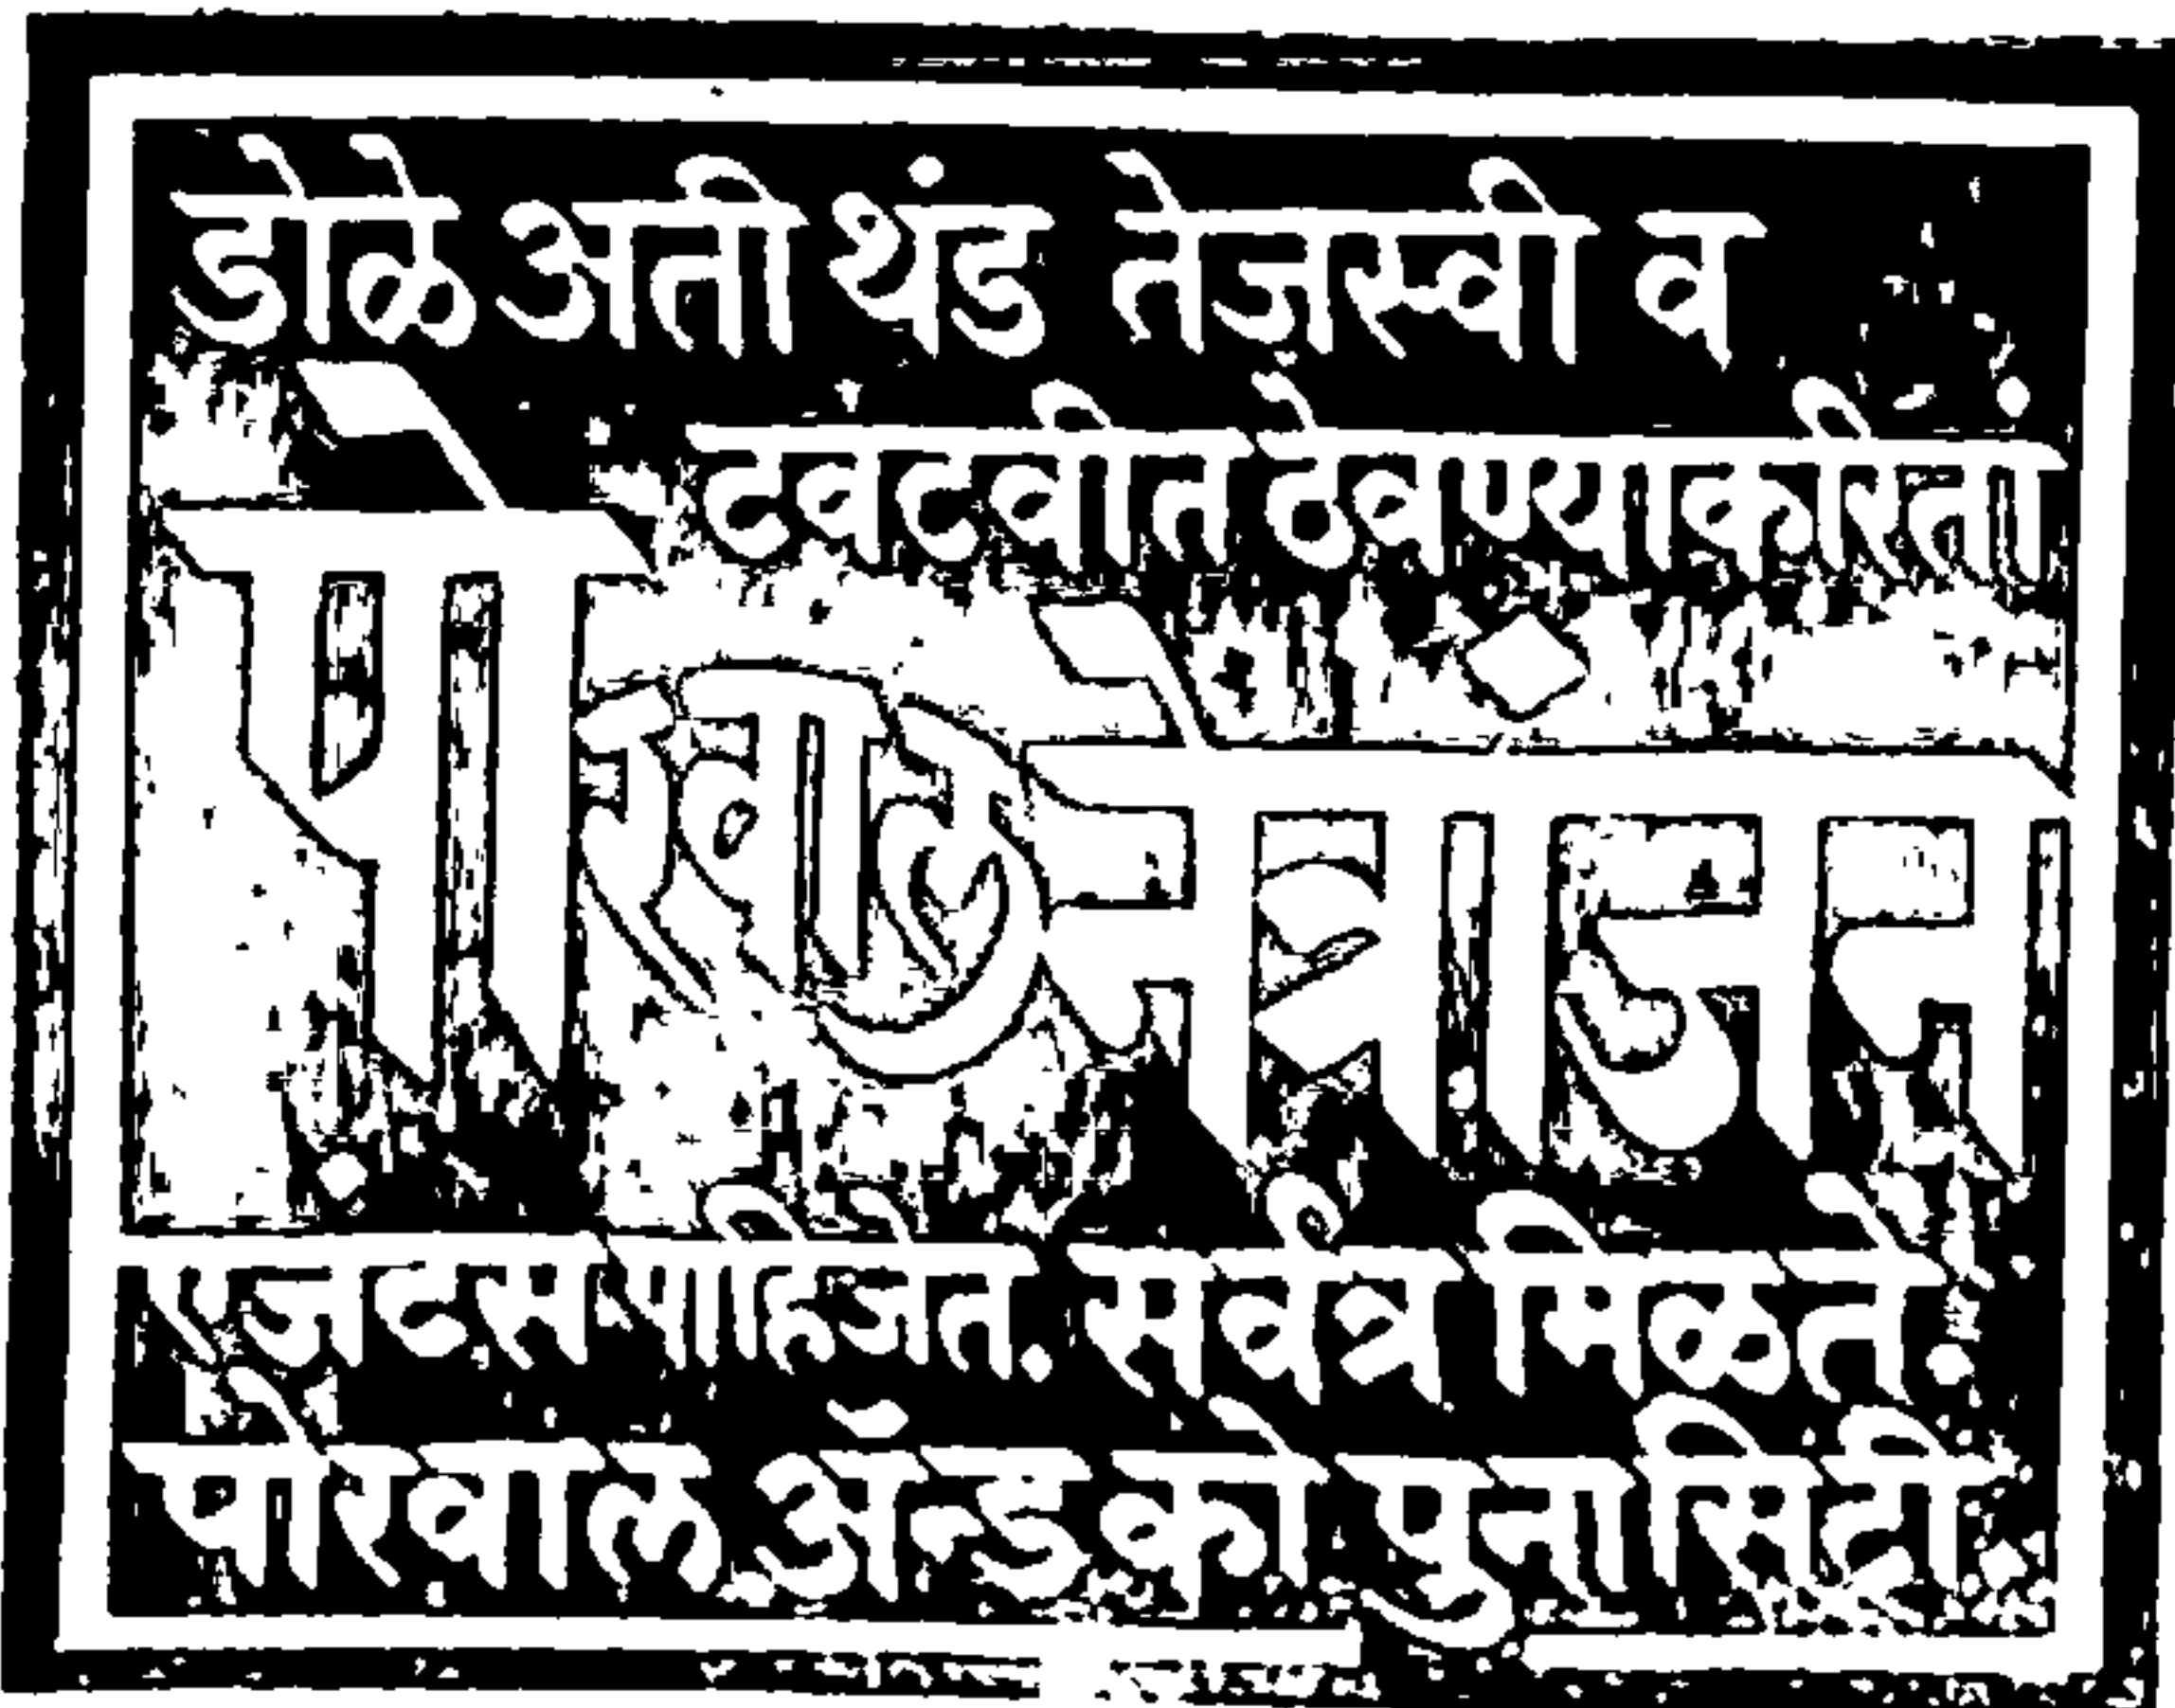 डोळे अती थंड तेजस्वी व
टवटवीत ठेवण्याकरितां
पोरवाल नेत्रांजन
एजंटस पाहिजेत. सर्वत्र मिळते.
पोरवाल ॲन्ड को पुनासिटी.